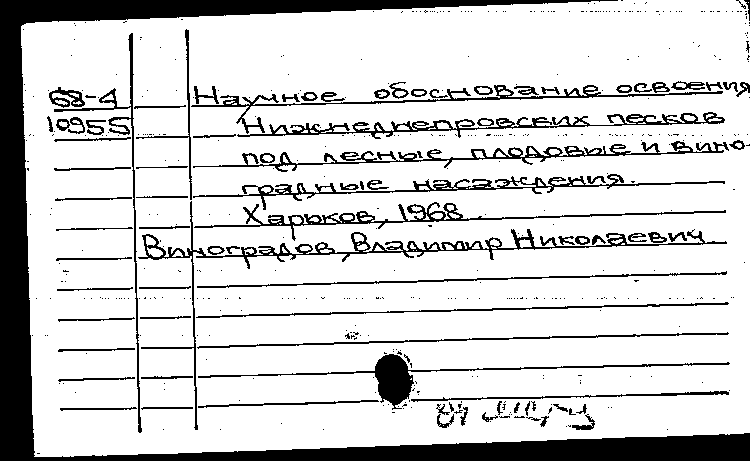 68-4 Научное обоснование освоения
10955 Нижнеднепровских песков
под лесные, плодовые и вино-
градные насаждения.
Харьков, 1968.
Виноградов, Владимир Николаевич
84